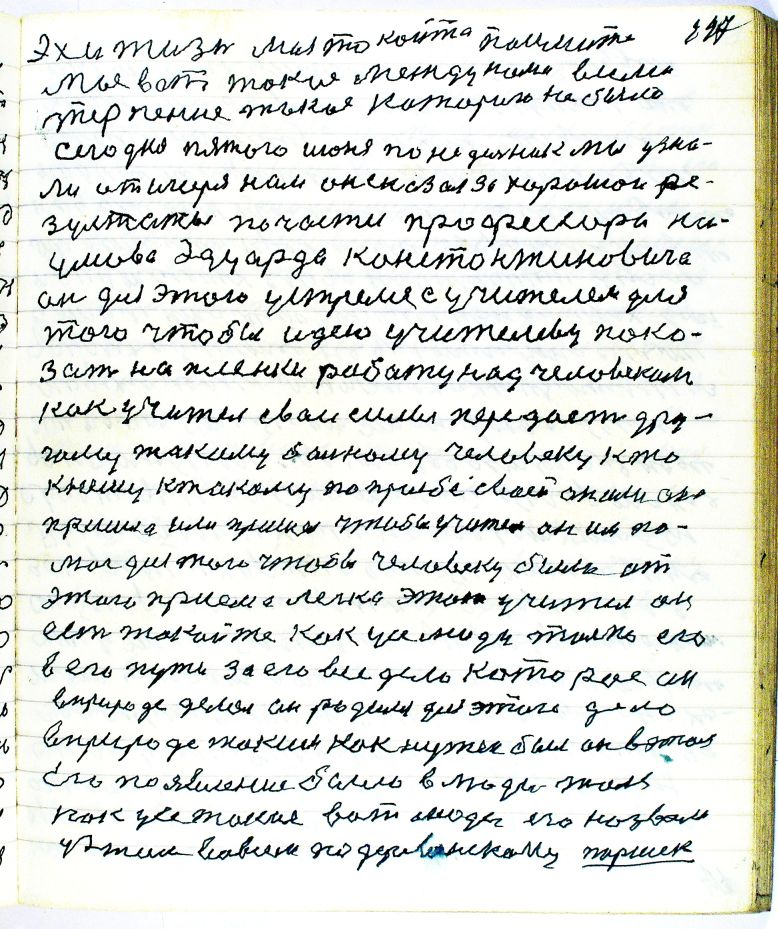 337
Эх и жизн моя то какйта поймите
мые вот такие между нами висми
терпение такое которого не было
Сегодня пятого июня понедельник мы узна-
ли от игоря нам он сказал за хорошои ре-
зултаты по части профессора на-
умова Эдуарда Константиновича
он для этого устремяс учителем для
того чтобы идею учителеву пока-
зат на пленки работу над человеком
как учител свои силы передает дру-
гому такому болному человеку кто
к нему к такому по прозбе своей он или она
пришла или пришел чтобы учител он им по-
мог для того чтобы человеку было от
этого приема легка Этот учител он
ест такойже как усе люди толко его
в его пути за его все дело которое он
в природе делал он родился для этого дело
в природе таким как нужен был он в этом
Его появление было в люди толя
как усе такие вот люди его назвали
учител Иванов по деревенскому паршек